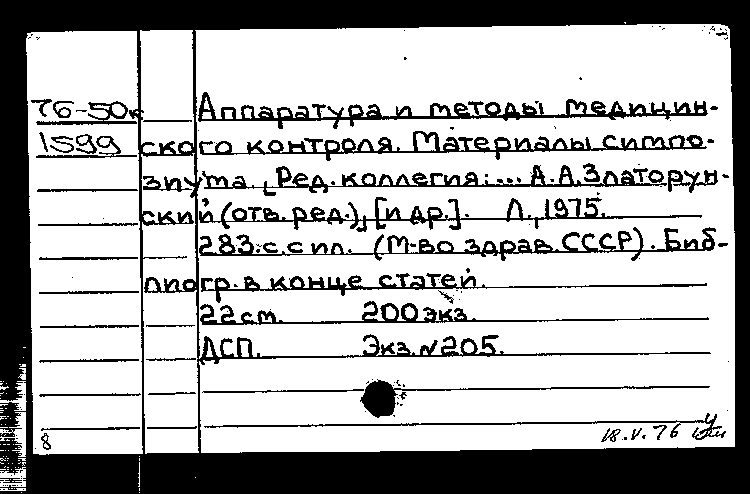 76-50к Аппаратура и методы медицин-
1599 ского контроля. Материалы симпо-
зиума. [Ред. коллегия: ... А.А.Златорун-
ский (отв. ред.), [и др.]. Л., 1975.
283 с. с ил. (М-во здрав. СССР). Биб-
лиогр. в конце статей.
22 см. 200 экз.
ДСП. Экз. №205.
8 18.V.76